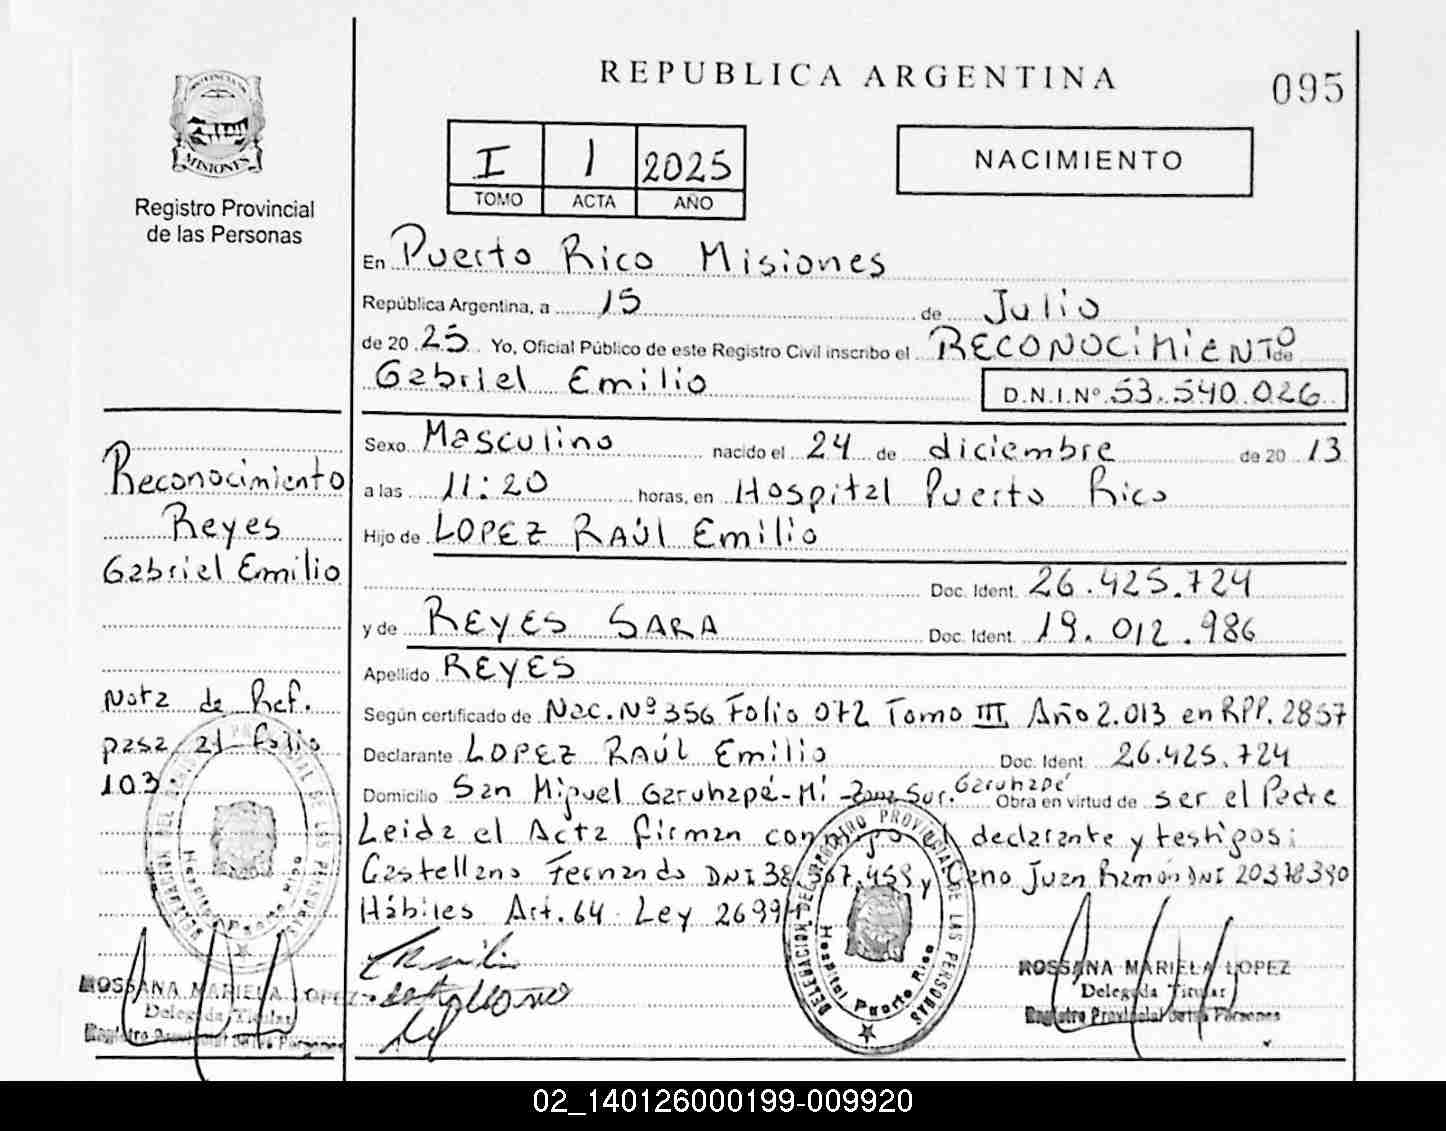 REPUBLICA ARGENTINA
095
MISIONES
Registro Provincial
de las Personas
I 1 2025
TOMO ACTA AÑO
NACIMIENTO
En Puerto Rico Misiones
República Argentina, a 15 de Julio
de 20 25 Yo, Oficial Público de este Registro Civil inscribo el RECONOCIMIENTO de
Gabriel Emilio D.N.I.Nº 53.540.026
Sexo Masculino nacido el 24 de diciembre de 20 13
a las 11:20 horas, en Hospital Puerto Rico
Hijo de LOPEZ RAÚL Emilio
Doc. Ident. 26.425.724
y de REYES SARA Doc. Ident. 19.012.986
Apellido REYES
Según certificado de Nac. Nº 356 Folio 072 Tomo III Año 2.013 en RPP. 2857
Declarante LOPEZ RAÚL Emilio Doc. Ident. 26.425.724
Domicilio San Miguel Garuhapé-Mí - Zona Sur. Garuhapé Obra en virtud de ser el Padre
Leida el Acta firman conmigo el declarante y testigos:
Castellano Fernando DNI y Juan Ramón DNI
Hábiles Art. 64 Ley 26994
Reconocimiento
Reyes
Gabriel Emilio
Nota de Ref.
pasa al folio
103
DELEGACION DEL REGISTRO PROVINCIAL DE LAS PERSONAS
Hospital Puerto Rico
ROSSANA MARIELA LOPEZ
Delegada Titular
Registro Provincial de las Personas
DELEGACION DEL REGISTRO PROVINCIAL DE LAS PERSONAS
Hospital Puerto Rico
ROSSANA MARIELA LOPEZ
Delegada Titular
Registro Provincial de las Personas
02_140126000199-009920